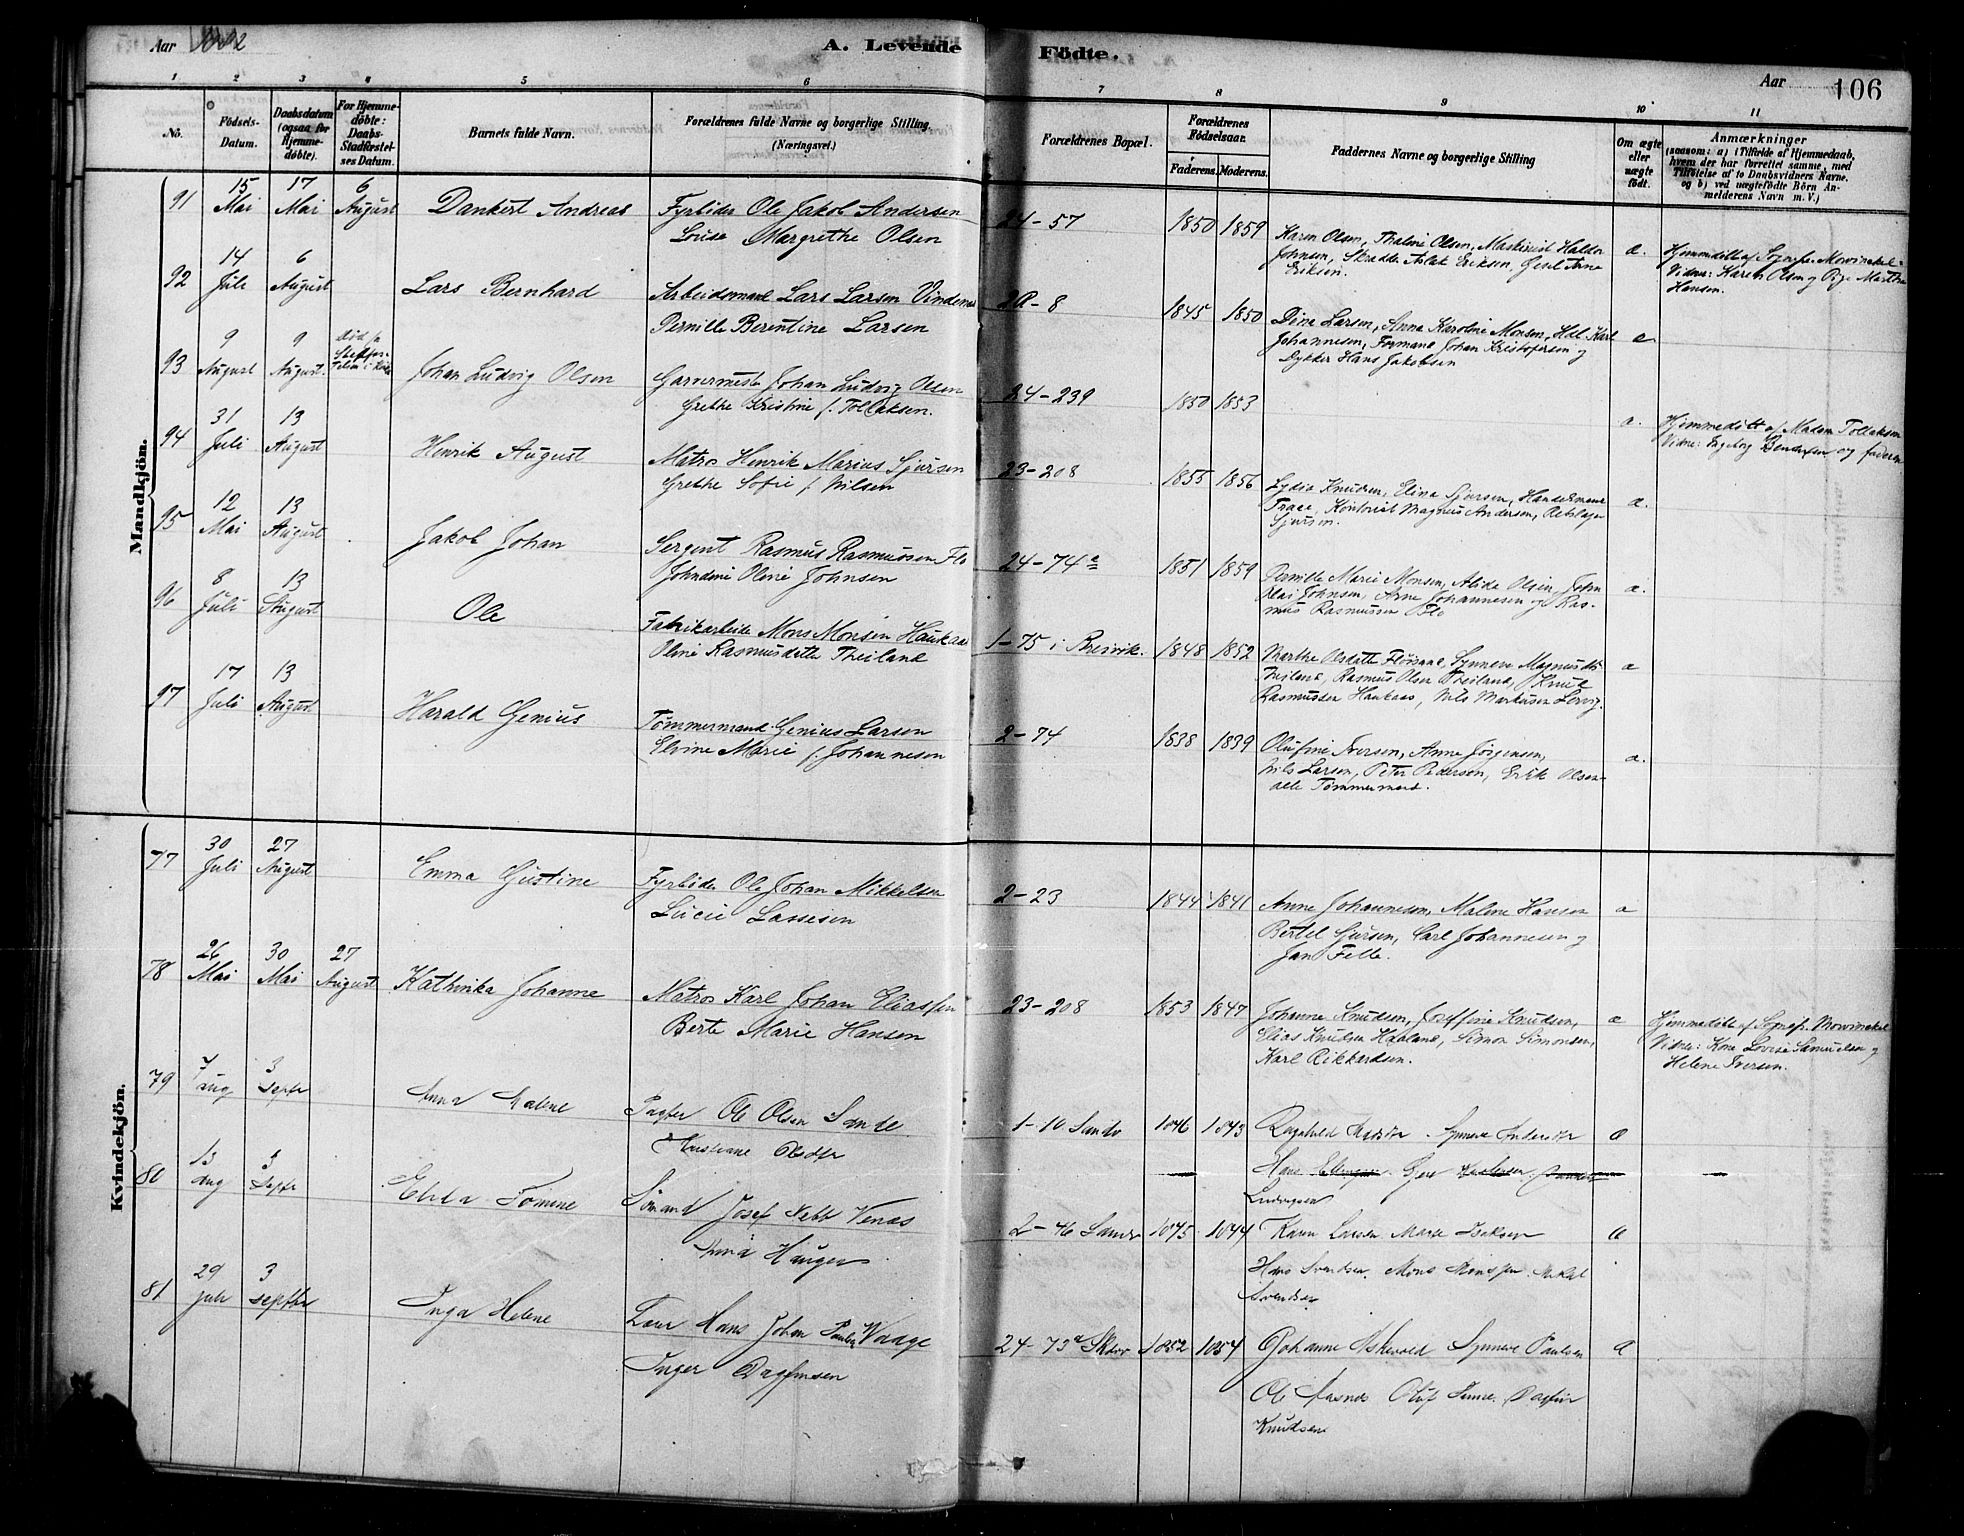 Aar 1882
A. Levende Födte.
Aar
106
1 2 3 4 5 6 7 8 9 10 11
No.
Födsels-Datum.
Daabsdatum (ogsaa for Hjemme-döbte).
For Hjemme-döbte: Daabs-Stadfæstel-ses Datum.
Barnets fulde Navn.
Forældrenes fulde Navne og borgerlige Stilling.
(Næringsvei.)
Forældrenes Bopæl.
Forældrenes Födselsaar.
Faderens. Moderens.
Faddernes Navne og borgerlige Stilling
Om ægte eller uægte födt.
Anmærkninger
(saasom: a) i Tilfælde af Hjemmedaab,
hvem der har forrettet samme, med
Tilföielse af to Daabsvidners Navne.
og b) ved uægtefödte Börn An-
melderens Navn m. V.)
Mandkjön.
91 15 Mai 17 Mai 6 August Dankert Andreas Fyrböder Ole Jakob Andersen
Louise Margrethe Olsen
24-57 1850 1859 Karen Olsen, Thaline Olsen, Maskinist Haldor
Johnsen, Skrædder Aslak Eriksen, Gesel Arne
Eriksen.
a. Hjemmedöbt af Sognepr. Mowinckel
Vidne: Karen Olsen og Pige Marthe
Hansen.
92 14 Juli 6 August Lars Bernhard Arbeidsmand Lars Larsen Vindenes
Pernille Berentine Larsen
2R-8 1845 1850 Dina Larsen, Anna Karoline Monsen, Hdl. Karl
Johannesen, Formand Johan Kristofersen og
Dykker Hans Jakobsen
a
93 9 August 9 August. Johan Ludvig Olsen Garvermester Johan Ludvig Olsen
Grethe Kristine f. Tollaksen.
24-239 1850 1853 a. Hjemmedöbt af Madam Tollaksen
Vidne: Ingeborg Bendixen og faderen
94 31 Juli 13 August Henrik August Matros Henrik Marius Sjursen
Grethe Sofie f. Nilsen
23-208 1855 1856 Lydia Knudsen, Elina Sjursen, Handelsmand
Kontorist Magnus Andersen,
Sjursen.
a.
95 12 Mai 13 August Jakob Johan Sergent Rasmus Rasmussen Flo
Johndine Oline Johnsen
24-74a 1851 1859 Pernille Marie Monsen, Alida Olsen, John
Olai Johnsen, Arne Johannesen og Ras-
mus Rasmussen Flo
a.
96 8 Juli 13 August Ole Fabrikarbeider Mons Monsen Haukaas
Oline Rasmusdatter Theiland
1-75 i Breivik. 1848 1852 Marthe Olsdatter Flöisand, Synneve Magnusdtr
Theiland, Rasmus Olsen Theiland, Knud
Rasmussen Haukaas, Nils Markusen Lervig.
a
97 17 Juli 13 August Harald Genius Tömmermand Genius Larsen
Elvine Marie f. Johannesen
2-74 1838 1839 Olufine Iversen, Anne Jörgensen,
Nils Larsen, Peter Pedersen, Erik Olsen
alle Tömmermænd.
a.
Kvindekjön.
77 30 Juli 27 August Emma Gustine Fyrböder Ole Johan Mikkelsen
Lucie Lassesen
2-23 1844 1841 Anne Johannesen, Malene Hansen
Bertel Sjursen, Carl Johannesen og
Jan Felle.
a
78 26 Mai 30 Mai 27 August Kathinka Johanne Matros Karl Johan Eliassen
Berte Marie Hansen
23-208 1853 1847 Johanne Knudsen, Joseffine Knudsen,
Elias Knudsen Haaland, Simon Simonsen,
Karl Rikkardsen.
a Hjemmedöbt af Sognepr. Mowinckel
Vidne: Kone Lovise Samuelsen og
Helene Iversen.
79 7 Aug 3 Septbr Anna Malene Ole Olsen Sande
Kristiane Olsdtr
1-10 Sandv 1846 1843 Ragnhild Synneve Andersdtr
Hans
Ludvigsen
a
80 13 Aug 3 Septbr Tomine Sömand Josef Venæs
Anna Hauger
2-46 Sandv 1845 1844 Karen Larsen Marte Isaksen
Hans Svendsen. Mons Monssen. Mikal
Svendsen
a
81 29 Juli 3 Septbr Inga Helene Hans Johan Paulsen Waage
Inger Dagfinsen
24-73a 1852 1854 Johanne Askevold Synneve Paulsen
Ole Oluf Dagfin
Knudsen
a